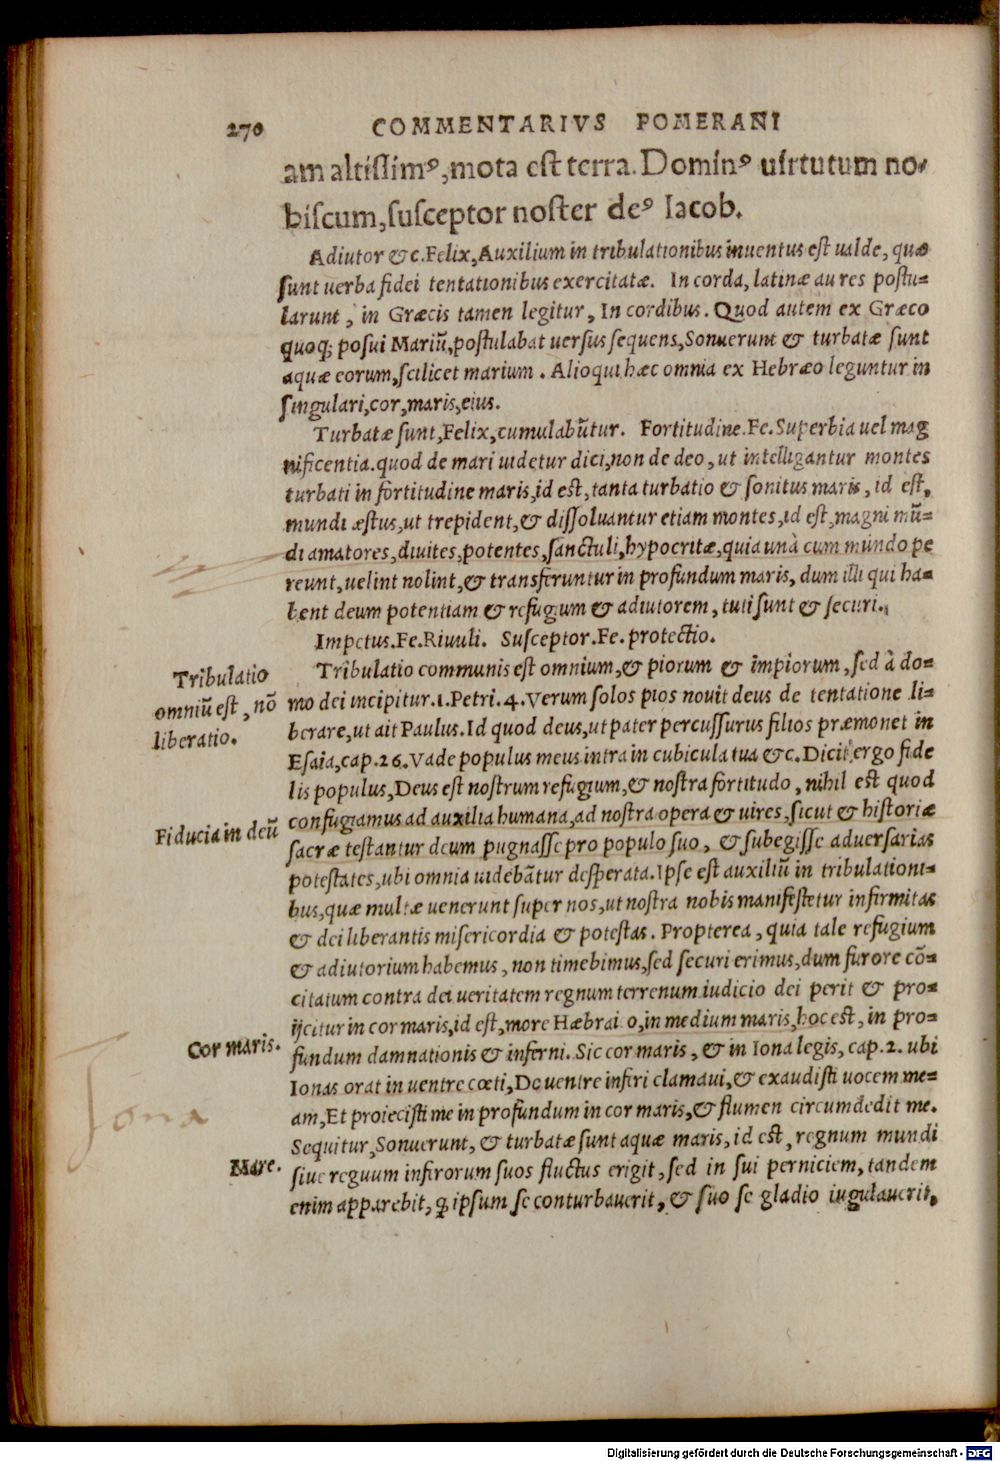 270 COMMENTARIVS POMERANI
am altissimꝰ, mota est terra. Dominꝰ uirtutum no-
biscum, susceptor noster deꝰ Iacob.
Adiutor &c. Felix, Auxilium in tribulationibus inuentus est ualde, quæ
sunt uerba fidei tentationibus exercitatæ. In corda, latinæ aures postu-
larunt, in Græcis tamen legitur, In cordibus. Quod autem ex Græco
quoq; posui Mariũ, postulabat uersus sequens, Sonuerunt & turbatæ sunt
aquæ eorum, scilicet marium. Alioqui hæc omnia ex Hebræo leguntur in
singulari, cor, maris, eius.
Turbatæ sunt, Felix, cumulabũtur. Fortitudine. Fe. Superbia uel mag
nificentia. quod de mari uidetur dici, non de deo, ut intelligantur montes
turbati in fortitudine maris, id est, tanta turbatio & sonitus maris, id est,
mundi æstus, ut trepident, & dissoluantur etiam montes, id est, magni mũ-
di amatores, diuites, potentes, sanctuli, hypocritæ, quia unà cum mundo pe
reunt, uelint nolint, & transferuntur in profundum maris, dum illi qui ha-
bent deum potentiam & refugium & adiutorem, tuti sunt & securi.
Impetus. Fe. Riuuli. Susceptor. Fe. protectio.
Tribulatio
omniũ est, nõ
liberatio.
Tribulatio communis est omnium, & piorum & impiorum, sed à do-
mo dei incipitur. 1. Petri. 4. Verum solos pios nouit deus de tentatione li-
berare, ut ait Paulus. Id quod deus, ut pater percussurus filios præmonet in
Esaia, cap. 26. Vade populus meus intra in cubicula tua &c. Dicit ergo fide
lis populus, Deus est nostrum refugium, & nostra fortitudo, nihil est quod
Fiducia in deũ
confugiamus ad auxilia humana, ad nostra opera & uires, sicut & historiæ
sacræ testantur deum pugnasse pro populo suo, & subegisse aduersarias
potestates, ubi omnia uidebãtur desperata. Ipse est auxiliũ in tribulationi-
bus, quæ multæ uenerunt super nos, ut nostra nobis manifestetur infirmitas
& dei liberantis misericordia & potestas. Propterea, quia tale refugium
& adiutorium habemus, non timebimus, sed securi erimus, dum furore cõ-
citatum contra dei ueritatem regnum terrenum iudicio dei perit & pro-
ijcitur in cor maris, id est, more Hæbrai o, in medium maris, hoc est, in pro-
Cor maris.
fundum damnationis & inferni. Sic cor maris, & in Iona legis, cap. 2. ubi
Ionas orat in uentre cœti, De uentre inferi clamaui, & exaudisti uocem me-
am, Et proiecisti me in profundum in cor maris, & flumen circumdedit me.
Jona
Sequitur, Sonuerunt, & turbatæ sunt aquæ maris, id est, regnum mundi
Mare.
siue regnum inferorum suos fluctus erigit, sed in sui perniciem, tandem
enim apparebit, ꝙ ipsum se conturbauerit, & suo se gladio iugulauerit,
Digitalisierung gefördert durch die Deutsche Forschungsgemeinschaft - DFG